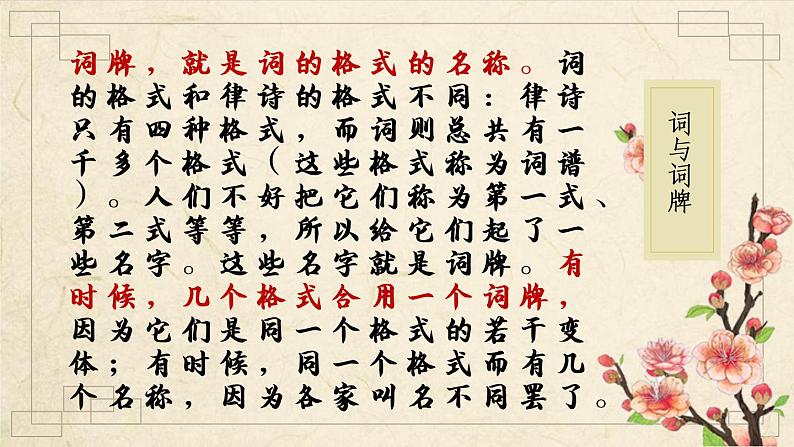 词牌，就是词的格式的名称。词
的格式和律诗的格式不同：律诗
只有四种格式，而词则总共有一
千多个格式（这些格式称为词谱
）。人们不好把它们称为第一式、
第二式等等，所以给它们起了一
些名字。这些名字就是词牌。有
时候，几个格式合用一个词牌，
因为它们是同一个格式的若干变
体；有时候，同一个格式而有几
个名称，因为各家叫名不同罢了。
词与词牌